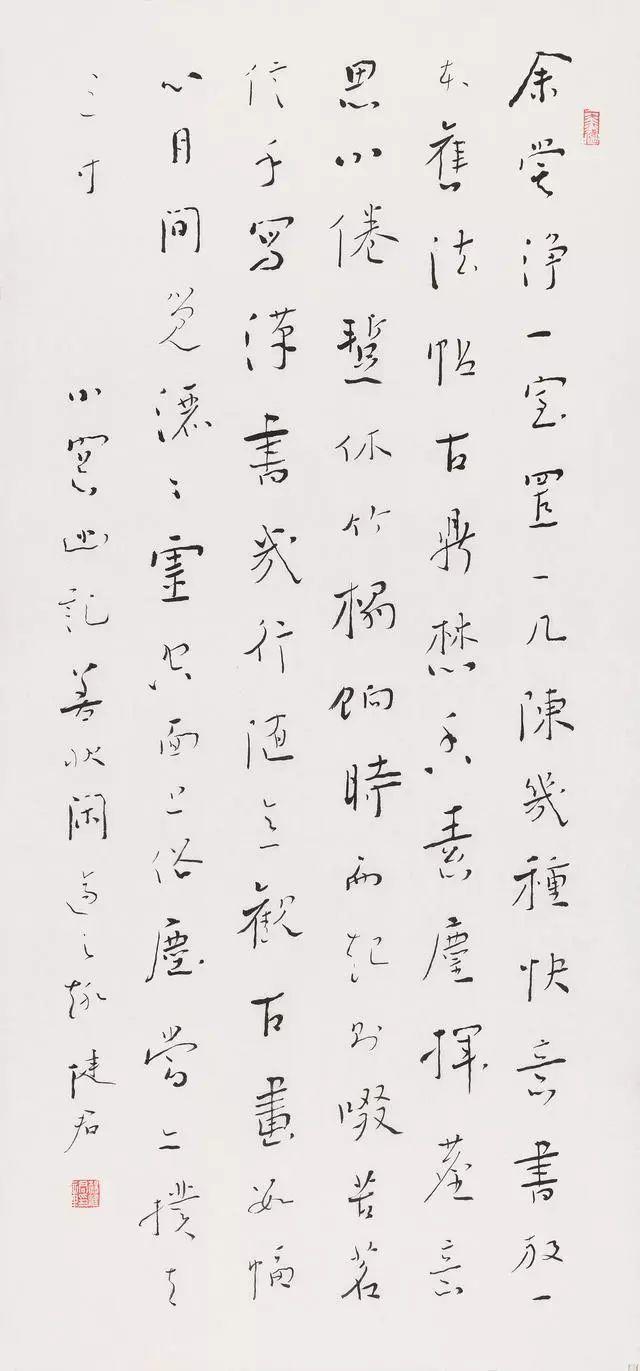 余嘗浄一室置一几陳幾種快意書放一
本舊法帖古鼎焚香素麈揮塵意
思小倦暫休竹榻餉時而起則啜苦茗
信手寫漢書幾行隨意觀古畫數幅
心目間覺灑々靈空面上俗塵當亦撲去
三寸 小窗幽記善狀閑適之趣 君